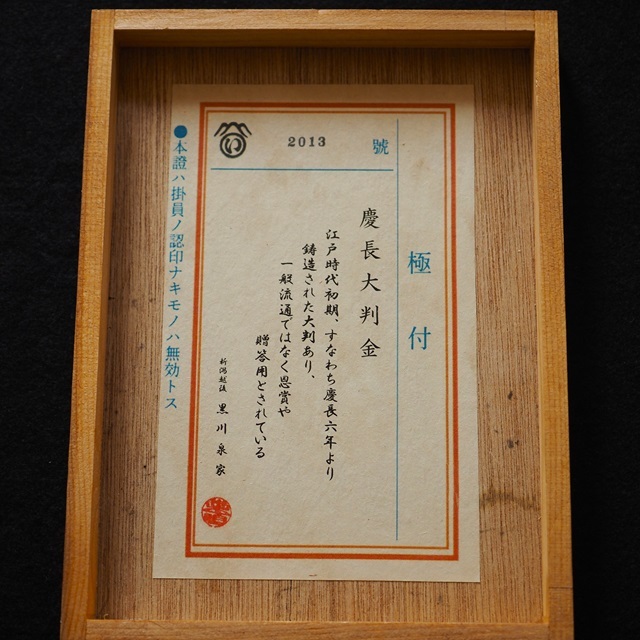 極付
2013 號
慶長大判金
江戸時代初期、すなわち慶長六年より
鋳造された大判あり、
一般流通ではなく恩賞や
贈答用とされている
新潟越後 黒川泉家
●本證ハ掛員ノ認印ナキモノハ無効トス